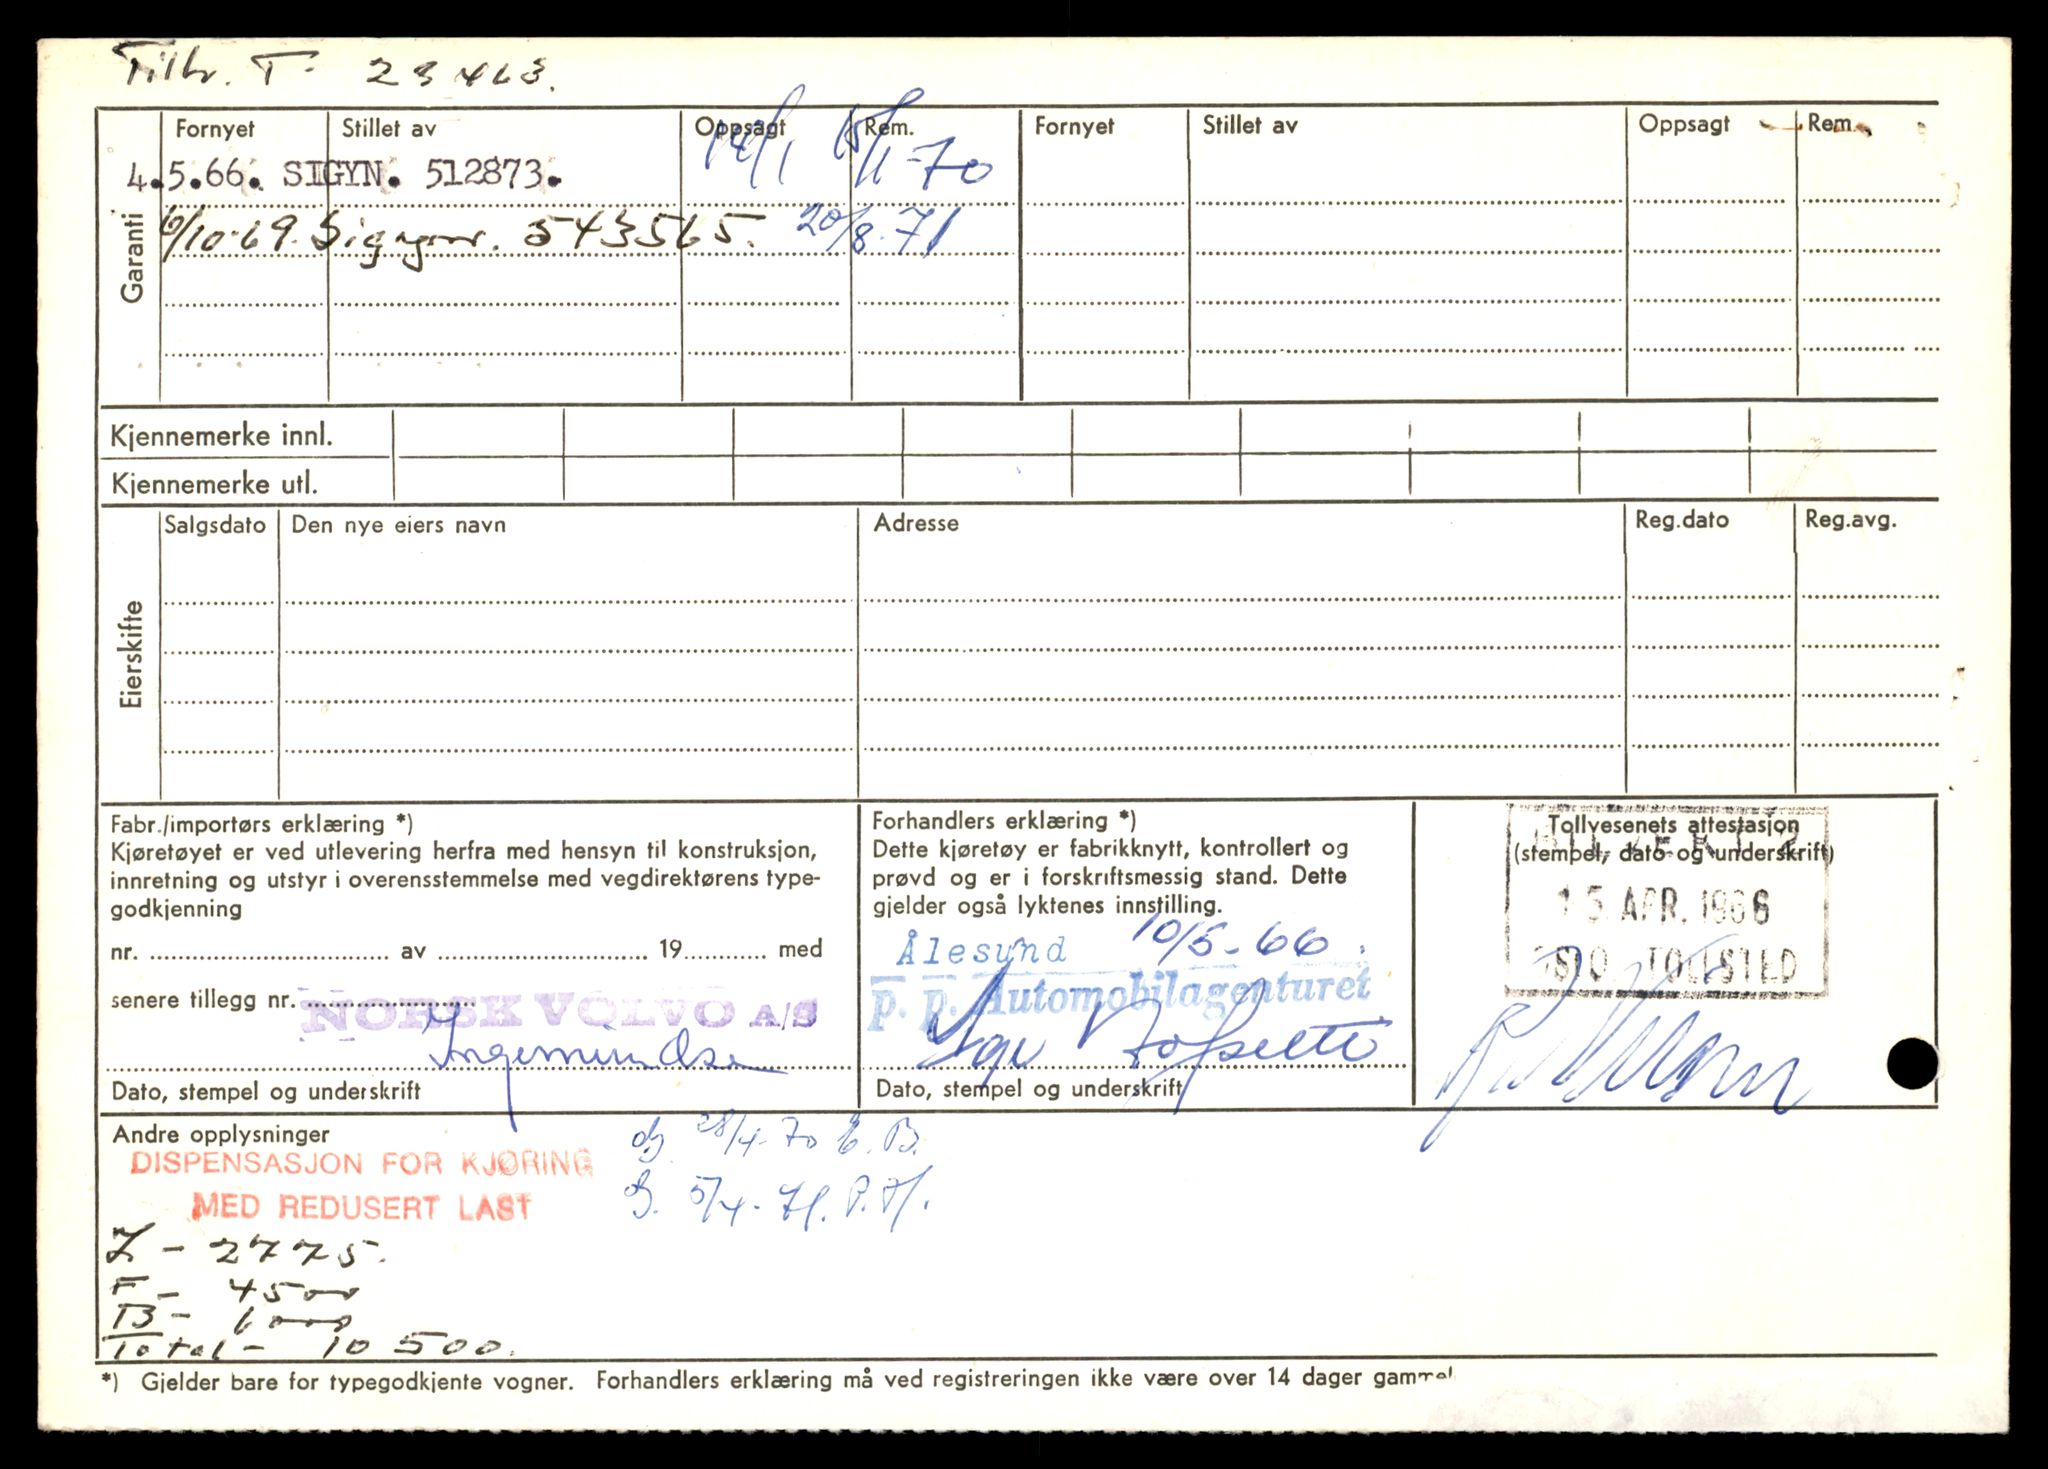 Tilh. T- 23463.
Garanti
Fornyet Stillet av Oppsagt Rem. Fornyet Stillet av Oppsagt Rem.
4.5.66. SIGYN. 512873. 14/1 15/1-70
6/10-69. Sigyn. 543565. 20/8-71
Kjennemerke innl.
Kjennemerke utl.
Eierskifte
Salgsdato Den nye eiers navn Adresse Reg.dato Reg.avg.
Fabr./importørs erklæring *)
Kjøretøyet er ved utlevering herfra med hensyn til konstruksjon,
innretning og utstyr i overensstemmelse med vegdirektørens type-
godkjenning
nr. av 19 med
senere tillegg nr.
NORSK VOLVO A/S
Ingemundsen
Dato, stempel og underskrift
Forhandlers erklæring *)
Dette kjøretøy er fabrikknytt, kontrollert og
prøvd og er i forskriftsmessig stand. Dette
gjelder også lyktenes innstilling.
Ålesund 10/5-66.
p. p. Automobilagenturet
Dato, stempel og underskrift
Tollvesenets attestasjon
(stempel, dato og underskrift)
15 APR. 1966
OSLO TOLLSTED
Andre opplysninger
DISPENSASJON FOR KJØRING
MED REDUSERT LAST
28/4-70 E.B.
5/4-71. P.H.
L - 2775.
F - 4500
B - 6000
Total - 10 500.
*) Gjelder bare for typegodkjente vogner. Forhandlers erklæring må ved registreringen ikke være over 14 dager gammel